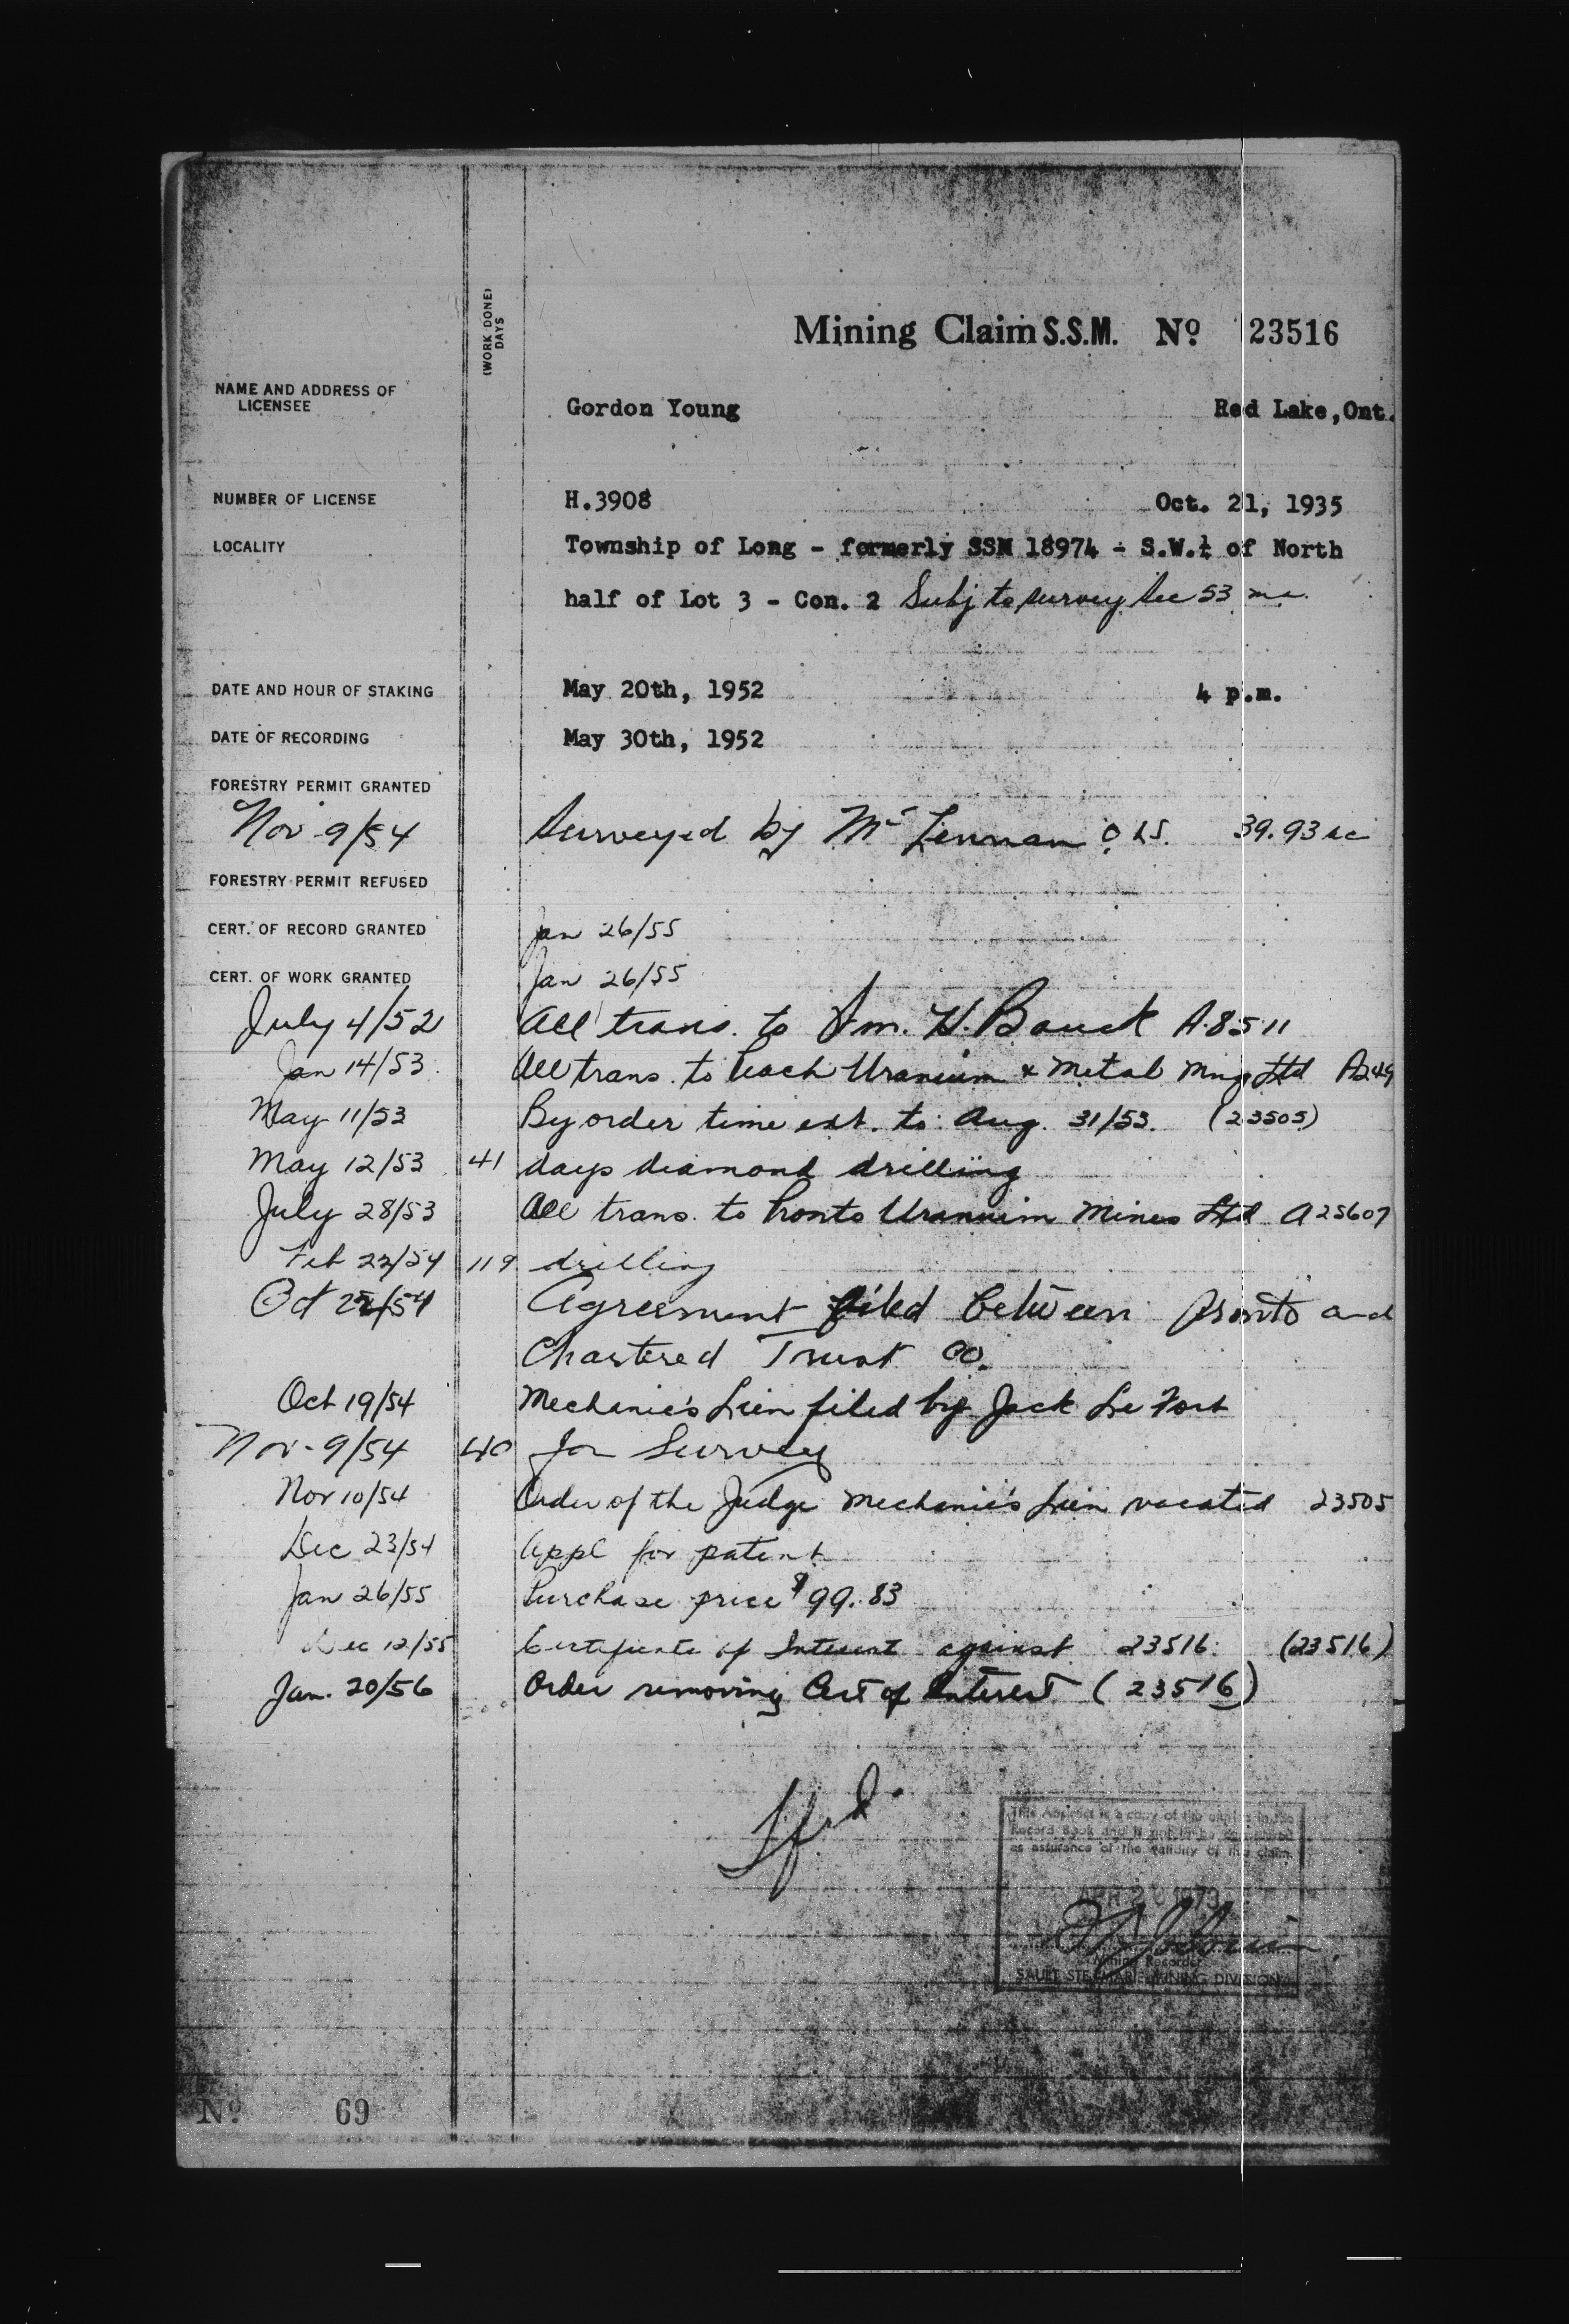 (WORK DONE)
DAYS
Mining Claim S.S.M. Nº 23516
NAME AND ADDRESS OF
LICENSEE
Gordon Young Red Lake,Ont.
NUMBER OF LICENSE H.3908 Oct. 21, 1935
LOCALITY Township of Long - formerly SSM 18974 - S.W.¼ of North
half of Lot 3 - Con. 2 Subj to survey Sec 53
DATE AND HOUR OF STAKING May 20th, 1952 4 p.m.
DATE OF RECORDING May 30th, 1952
FORESTRY PERMIT GRANTED
Nov 9/54 Surveyed by Mc Lennan O.L.S. 39.93 ac
FORESTRY PERMIT REFUSED
CERT. OF RECORD GRANTED Jan 26/55
CERT. OF WORK GRANTED Jan 26/55
July 4/52 All trans. to Wm. H. Bouck A.8511
Jan 14/53 All trans. to Peach Uranium & Metal Mng Ltd A249
May 11/53 By order time ext. to Aug. 31/53. (23505)
May 12/53 41 days diamond drilling
July 28/53 All trans. to Pronto Uranium Mines Ltd A25607
Feb 22/54 119 drilling
Oct /54 Agreement filed between Pronto and
Chartered Trust Co.
Oct 19/54 Mechanic's Lien filed by Jack Le Fort
Nov-9/54 40 for Survey
Nov 10/54 Order of the Judge Mechanic's Lien vacated 23505
Dec 23/54 Appl for patent
Jan 26/55 Purchase price $99.83
Dec 12/55 Certificate of Interest against 23516 (23516)
Jan. 20/56 Order removing Cert of Interest (23516)
This Abstract is a copy of the entries in the
Record Book and is not to be considered
as assurance of the validity of the claim.
APR 20 1973
Mining Recorder
SAULT STE. MARIE MINING DIVISION
Nº 69